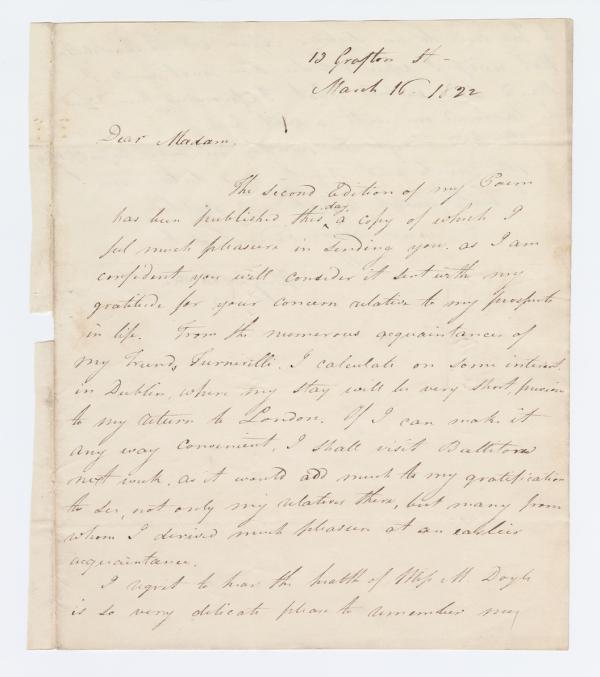 13 Grafton St -
March 16. 1822
Dear Madam,
The second Edition of my Poem
has been published this day a copy of which I
feel much pleasure in sending you as I am
confident you will consider it sent with my
gratitude for your concern relative to my prospects
in life. From the numerous acquaintances of
my Friend, Turnerelli. I calculate on some interest
in Dublin, where my stay will be very short, previous
to my return to London. If I can make it
any way convenient, I shall visit
next week, as it would add much to my gratification
to see, not only my relatives there, but many from
whom I derived much pleasure at an earlier
acquaintance.
I regret to hear the health of Miss M. Doyle
is so very delicate please to remember me